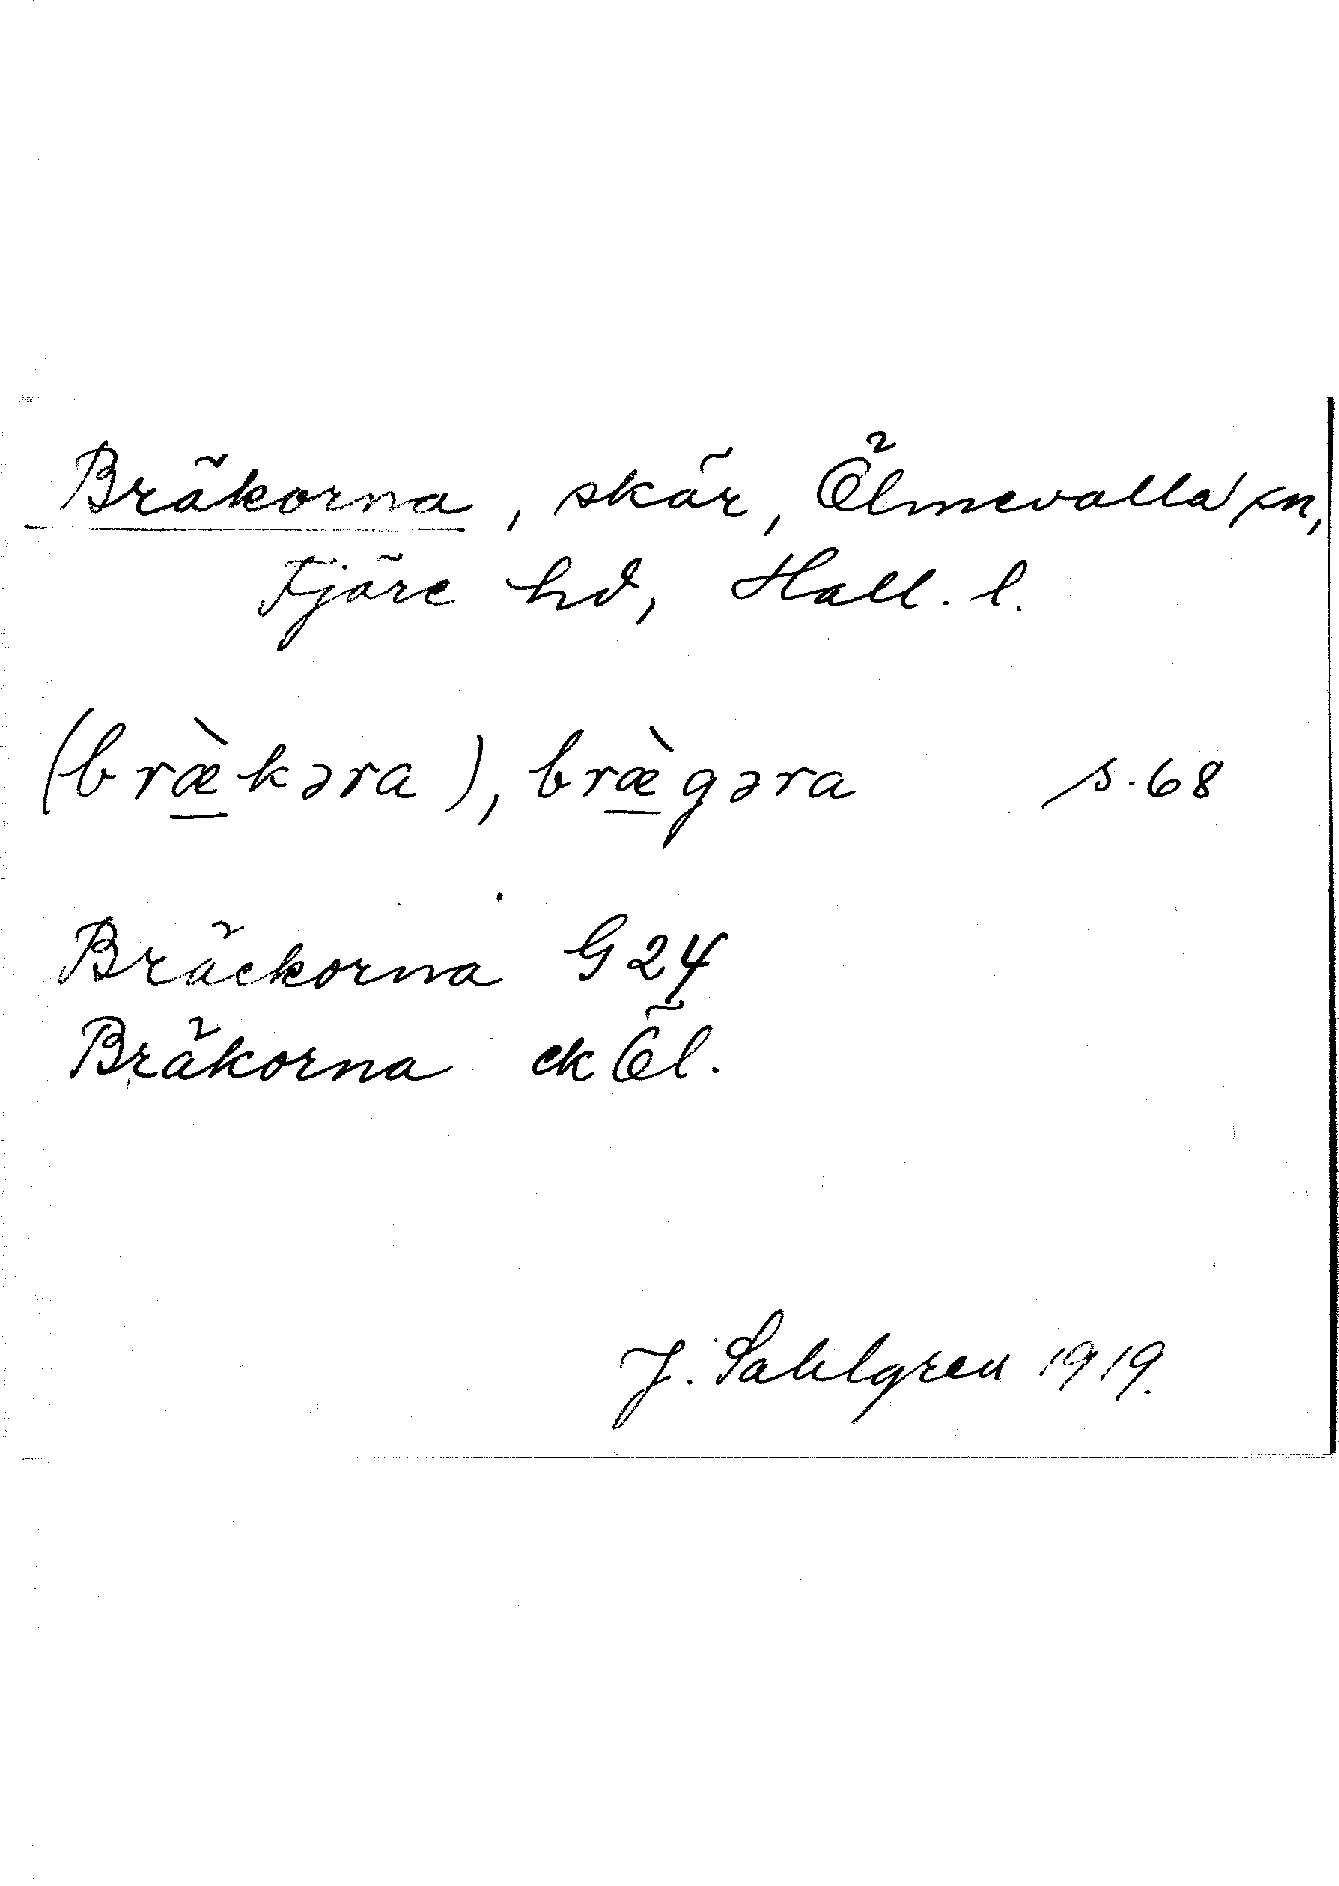 Bräkorna, skär, Ölmevalla sn,
Fjäre hd, Hall. l.
(bræ̀kəra), bræ̀gəra s. 68
Bräckorna G 24
Bräkorna ek Öl.
J. Sahlgren 1919.